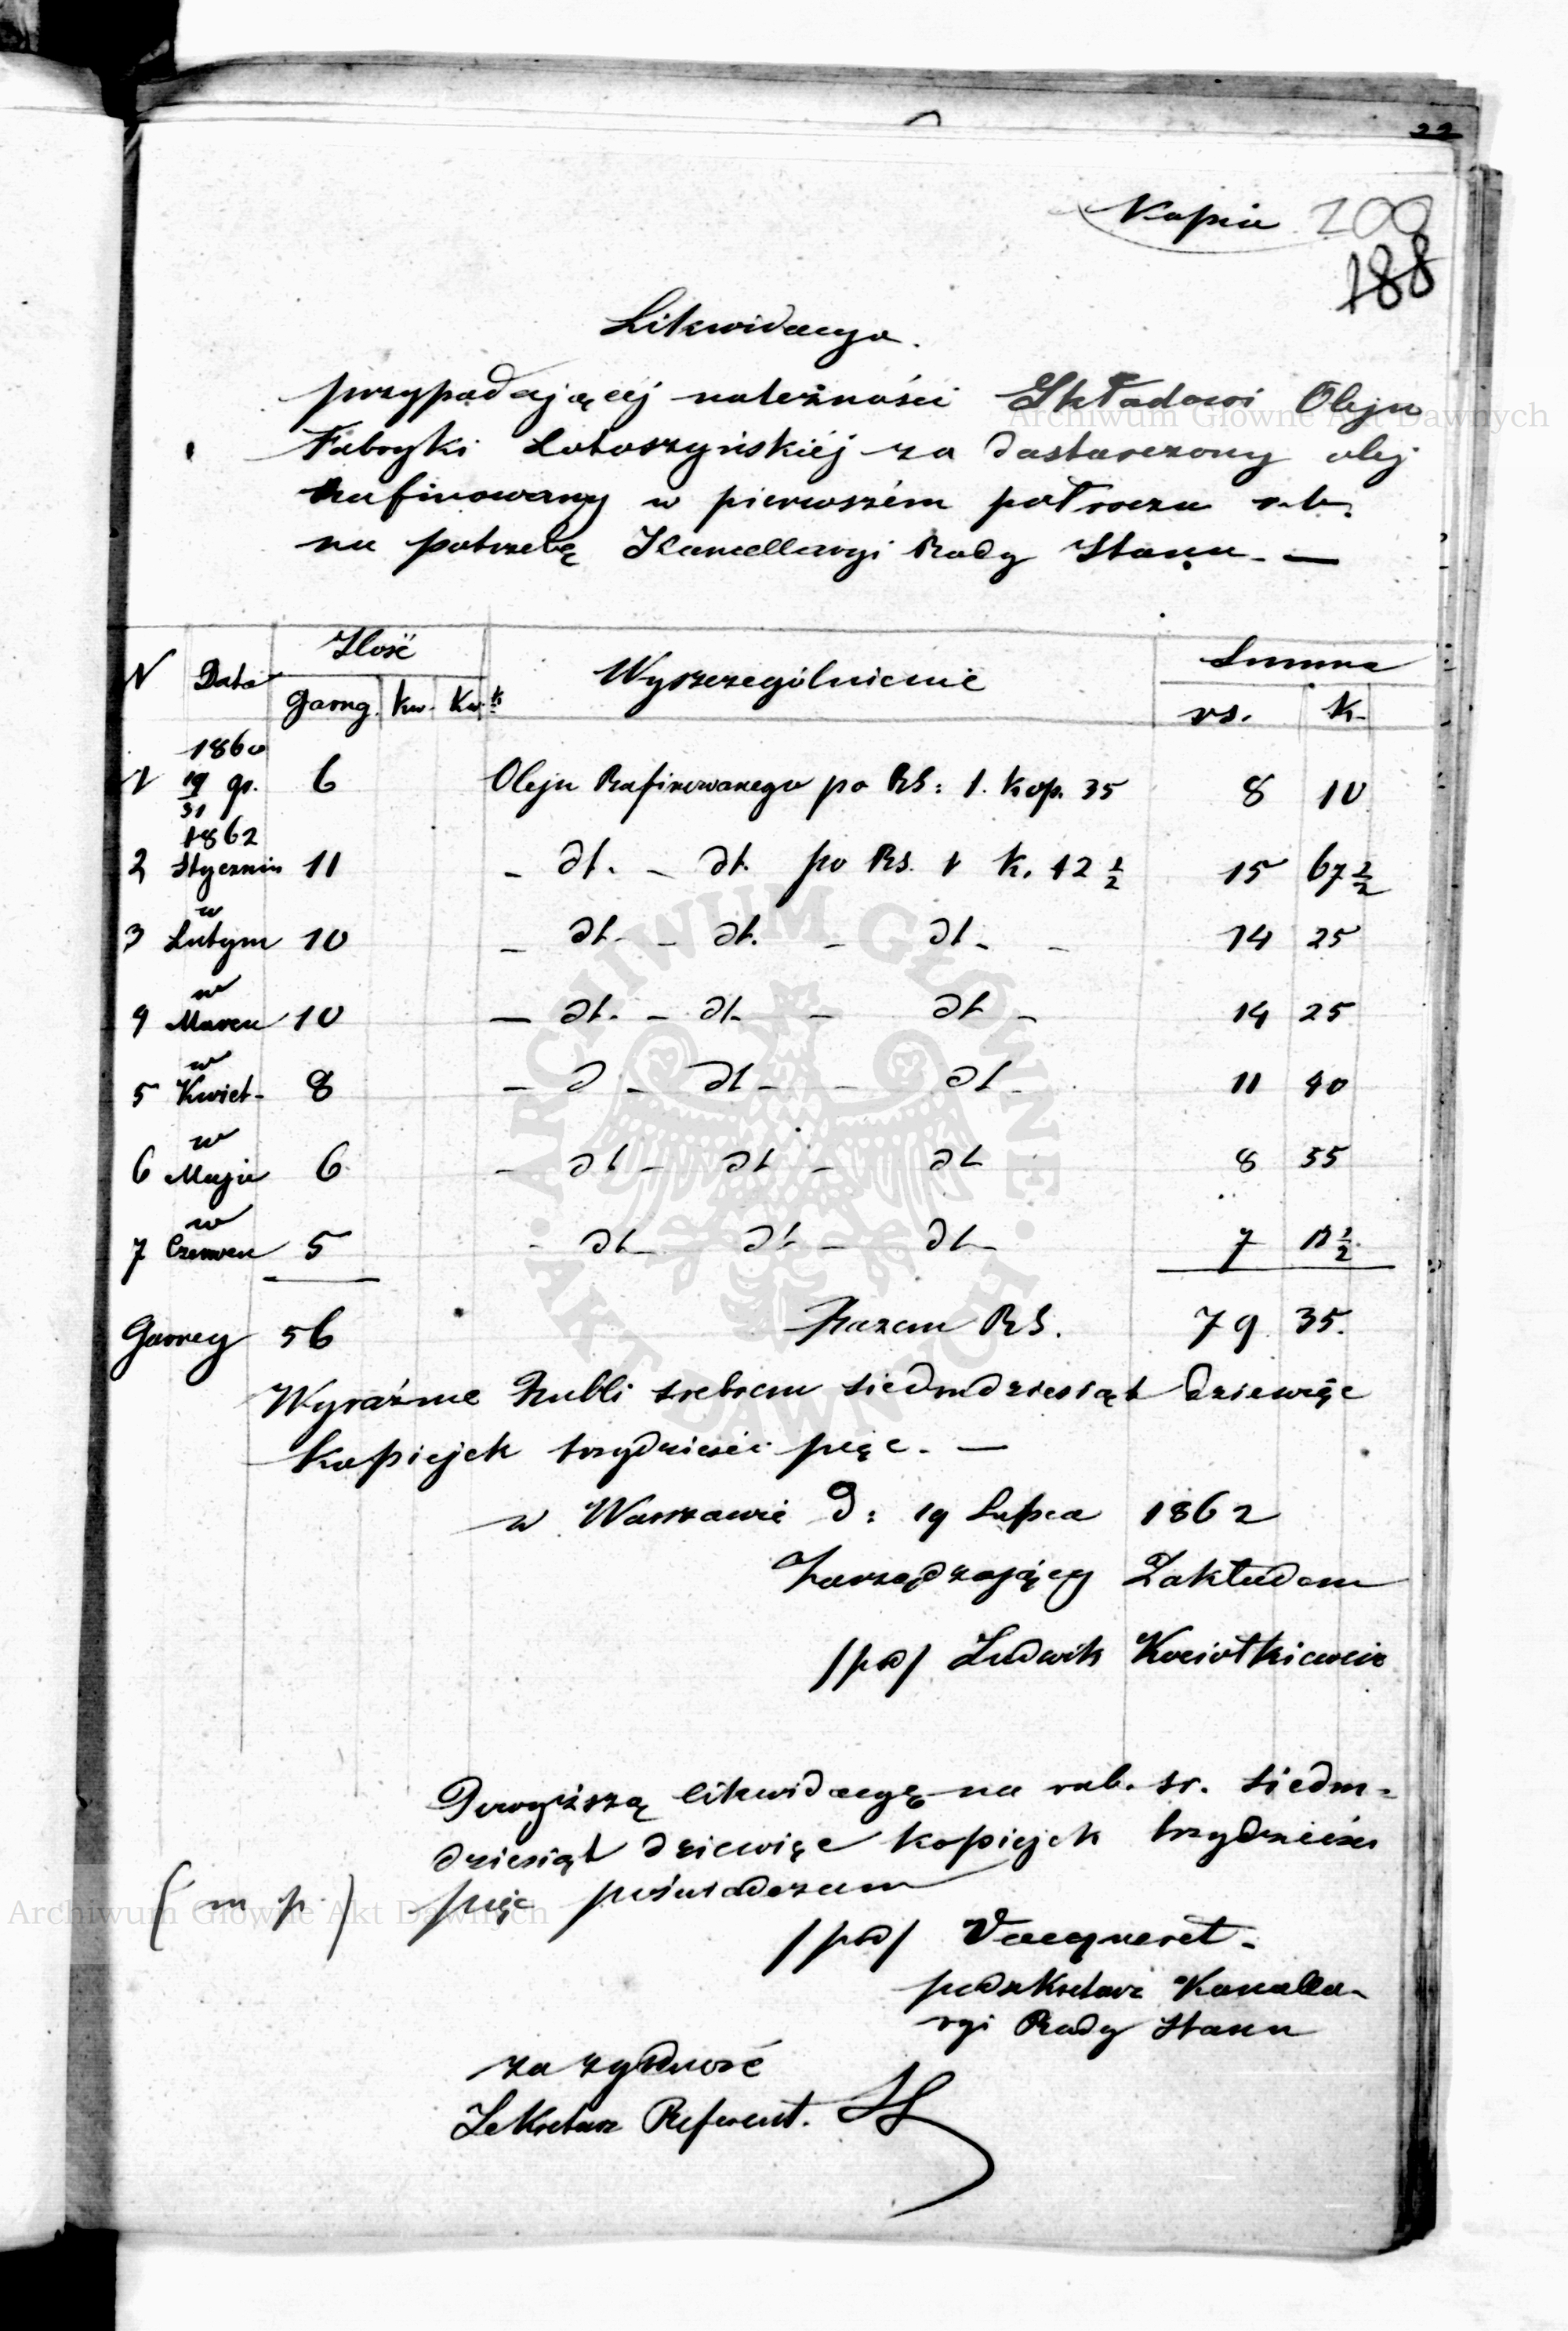 22
Kopia 200
188
Likwidacya.
przypadającej należności Składowi Oleju
Fabryki za dostarczony olej
Rafinowany w pierwszém półroczu r.b.
na potrzebę Kancellaryi Rady Stanu. —
N Data Ilość Wyszczególnienie Summa
Garncy. Kw. Kw. rs. k.
1860
1 19/31 gr. 6 Oleju Rafinowanego po RS: 1. kop. 35 8 10
1862
2 Styczniu 11 - dt. - dt. po Rs. 1 k. 42 1/2 15 67 1/2
w
3 Lutym 10 - dt. - dt. - dt. - 14 25
w
4 Marcu 10 - dt. - dt. - dt - 14 25
w
5 Kwiet- 8 - d - dt - - dt - 11 40
w
6 Maju 6 - dt - dt - dt 8 55
w
7 Czerwcu 5 - dt - dt - dt - 7 12 1/2
Garncy 56 Razem RS. 79 35.
Wyraźnie Rubli srebrem siedmdziesiąt dziewięć
kopiejek trzydzieści pięć. —
w Warszawie d: 19 Lipca 1862
Zarządzający Zakładem
/pd/ Ludwik
Powyższą likwidacyę na rub. sr. siedm-
dziesiąt dziewięć kopiejek trzydzieści
(m p.) pięć poświadczam
/pd/ Vacqueret.
podsekretarz Kancella-
ryi Rady Stanu
za zgodność
Sekretarz Referent.
Archiwum Główne Akt Dawnych
Archiwum Główne Akt Dawnych
ARCHIWUM GŁÓWNE
AKT DAWNYCH